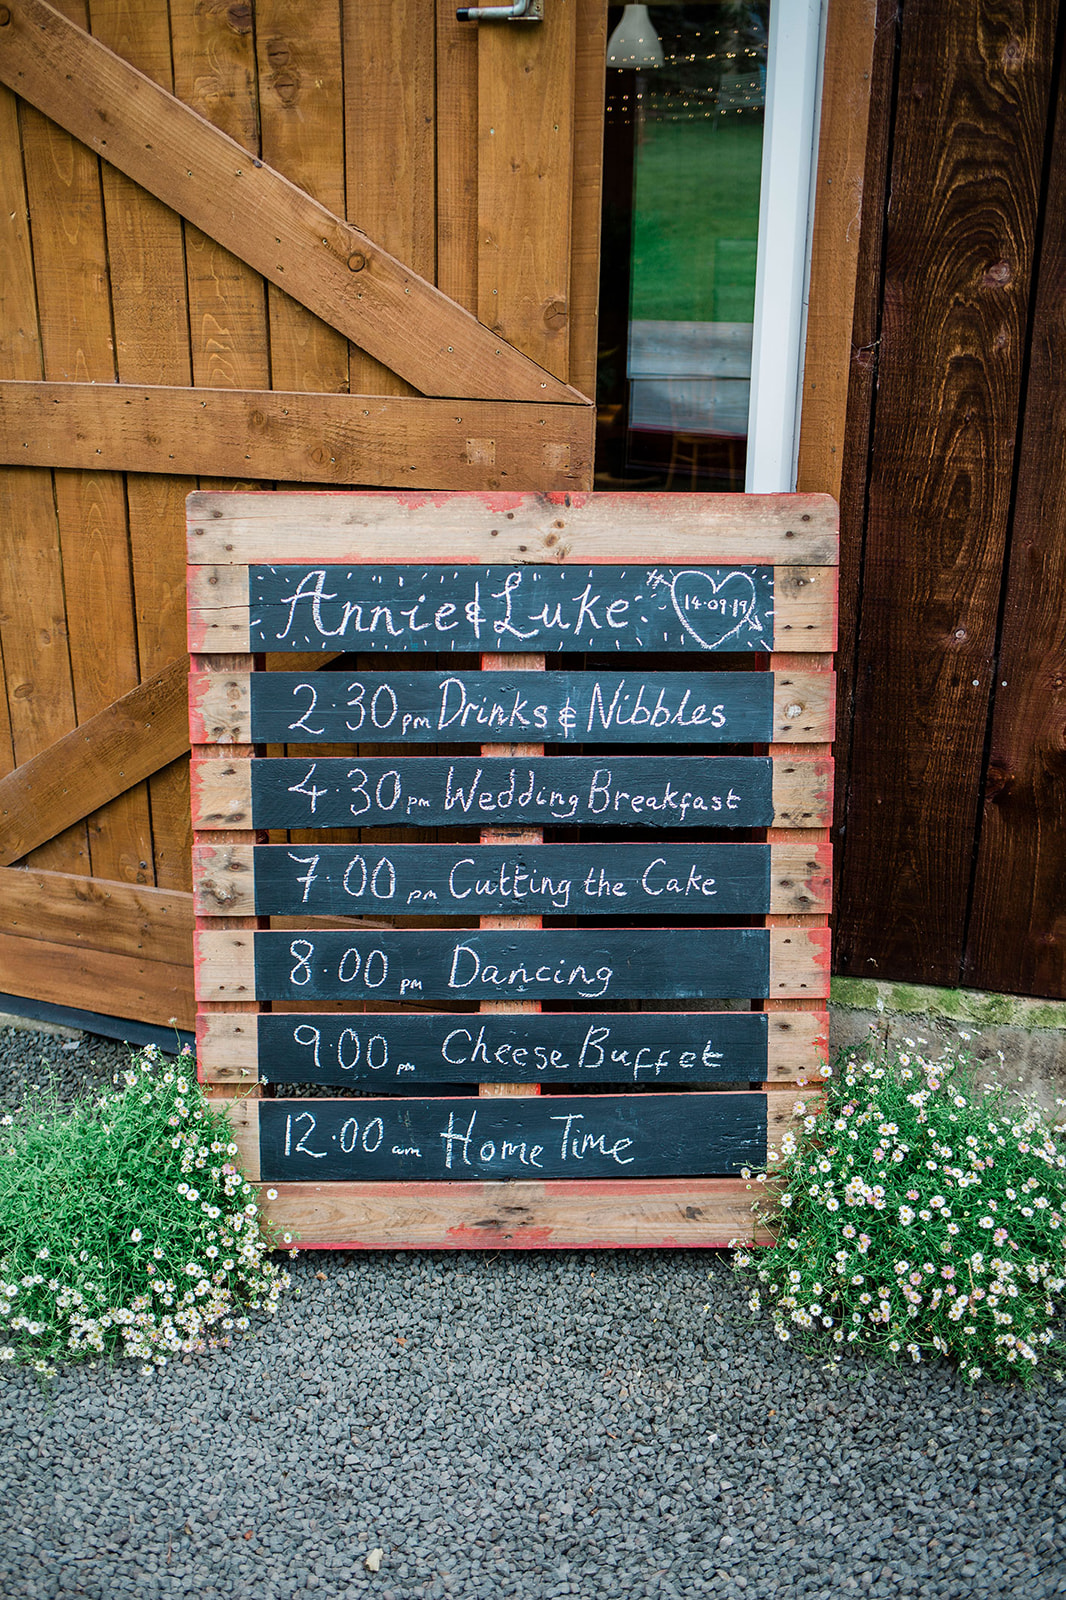 Annie & Luke 14·09·19
2·30pm Drinks & Nibbles
4·30pm Wedding Breakfast
7·00pm Cutting the Cake
8·00pm Dancing
9·00pm Cheese Buffet
12·00am Home Time